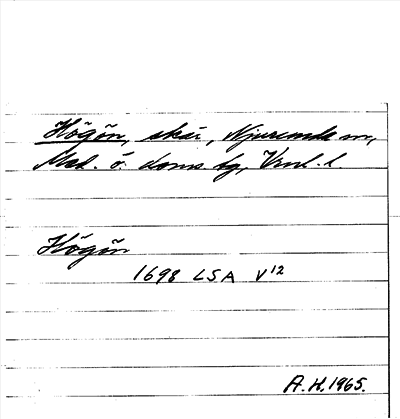 Högön, skär, Njurunda sn,
Med. ö. doms. tg, Vnl. l.
Högön
1698 LSA V12
A.H. 1965.